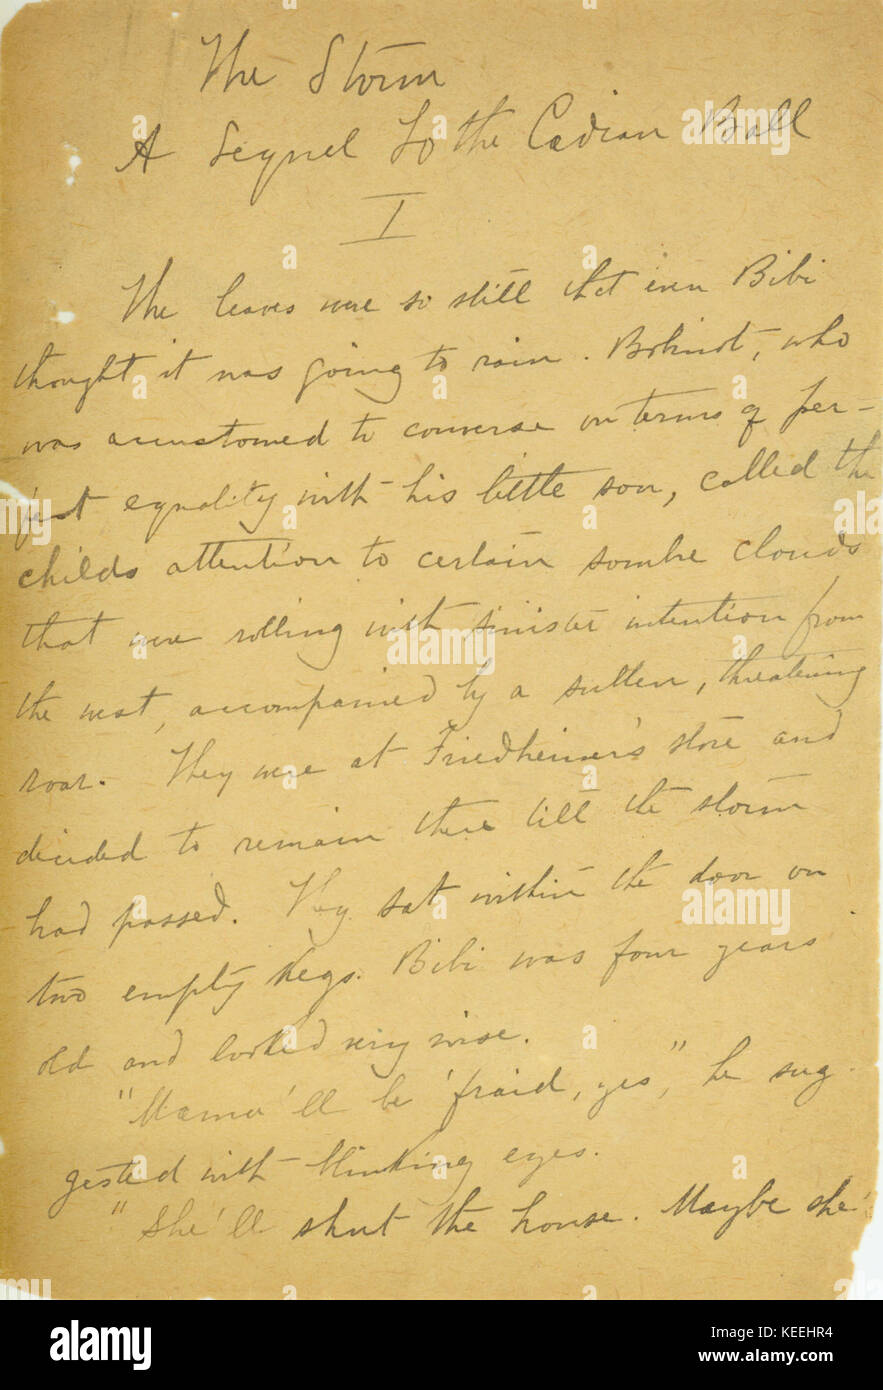 The Storm
A Sequel to the Cadian Ball
I
The leaves were so still that even Bibi
thought it was going to rain. Bobinôt, who
was accustomed to converse on terms of per-
fect equality with his little son, called the
childs attention to certain sombre clouds
that were rolling with sinister intention from
the west, accompanied by a sullen, threatening
roar. They were at Friedheimer's store and
decided to remain there till the storm
had passed. They sat within the door on
two empty kegs. Bibi was four years
old and looked very wise.
"Mama'll be 'fraid, yes," he sug
gested with blinking eyes.
"She'll shut the house. Maybe she
alamy
Image ID: KEEHR4
www.alamy.com